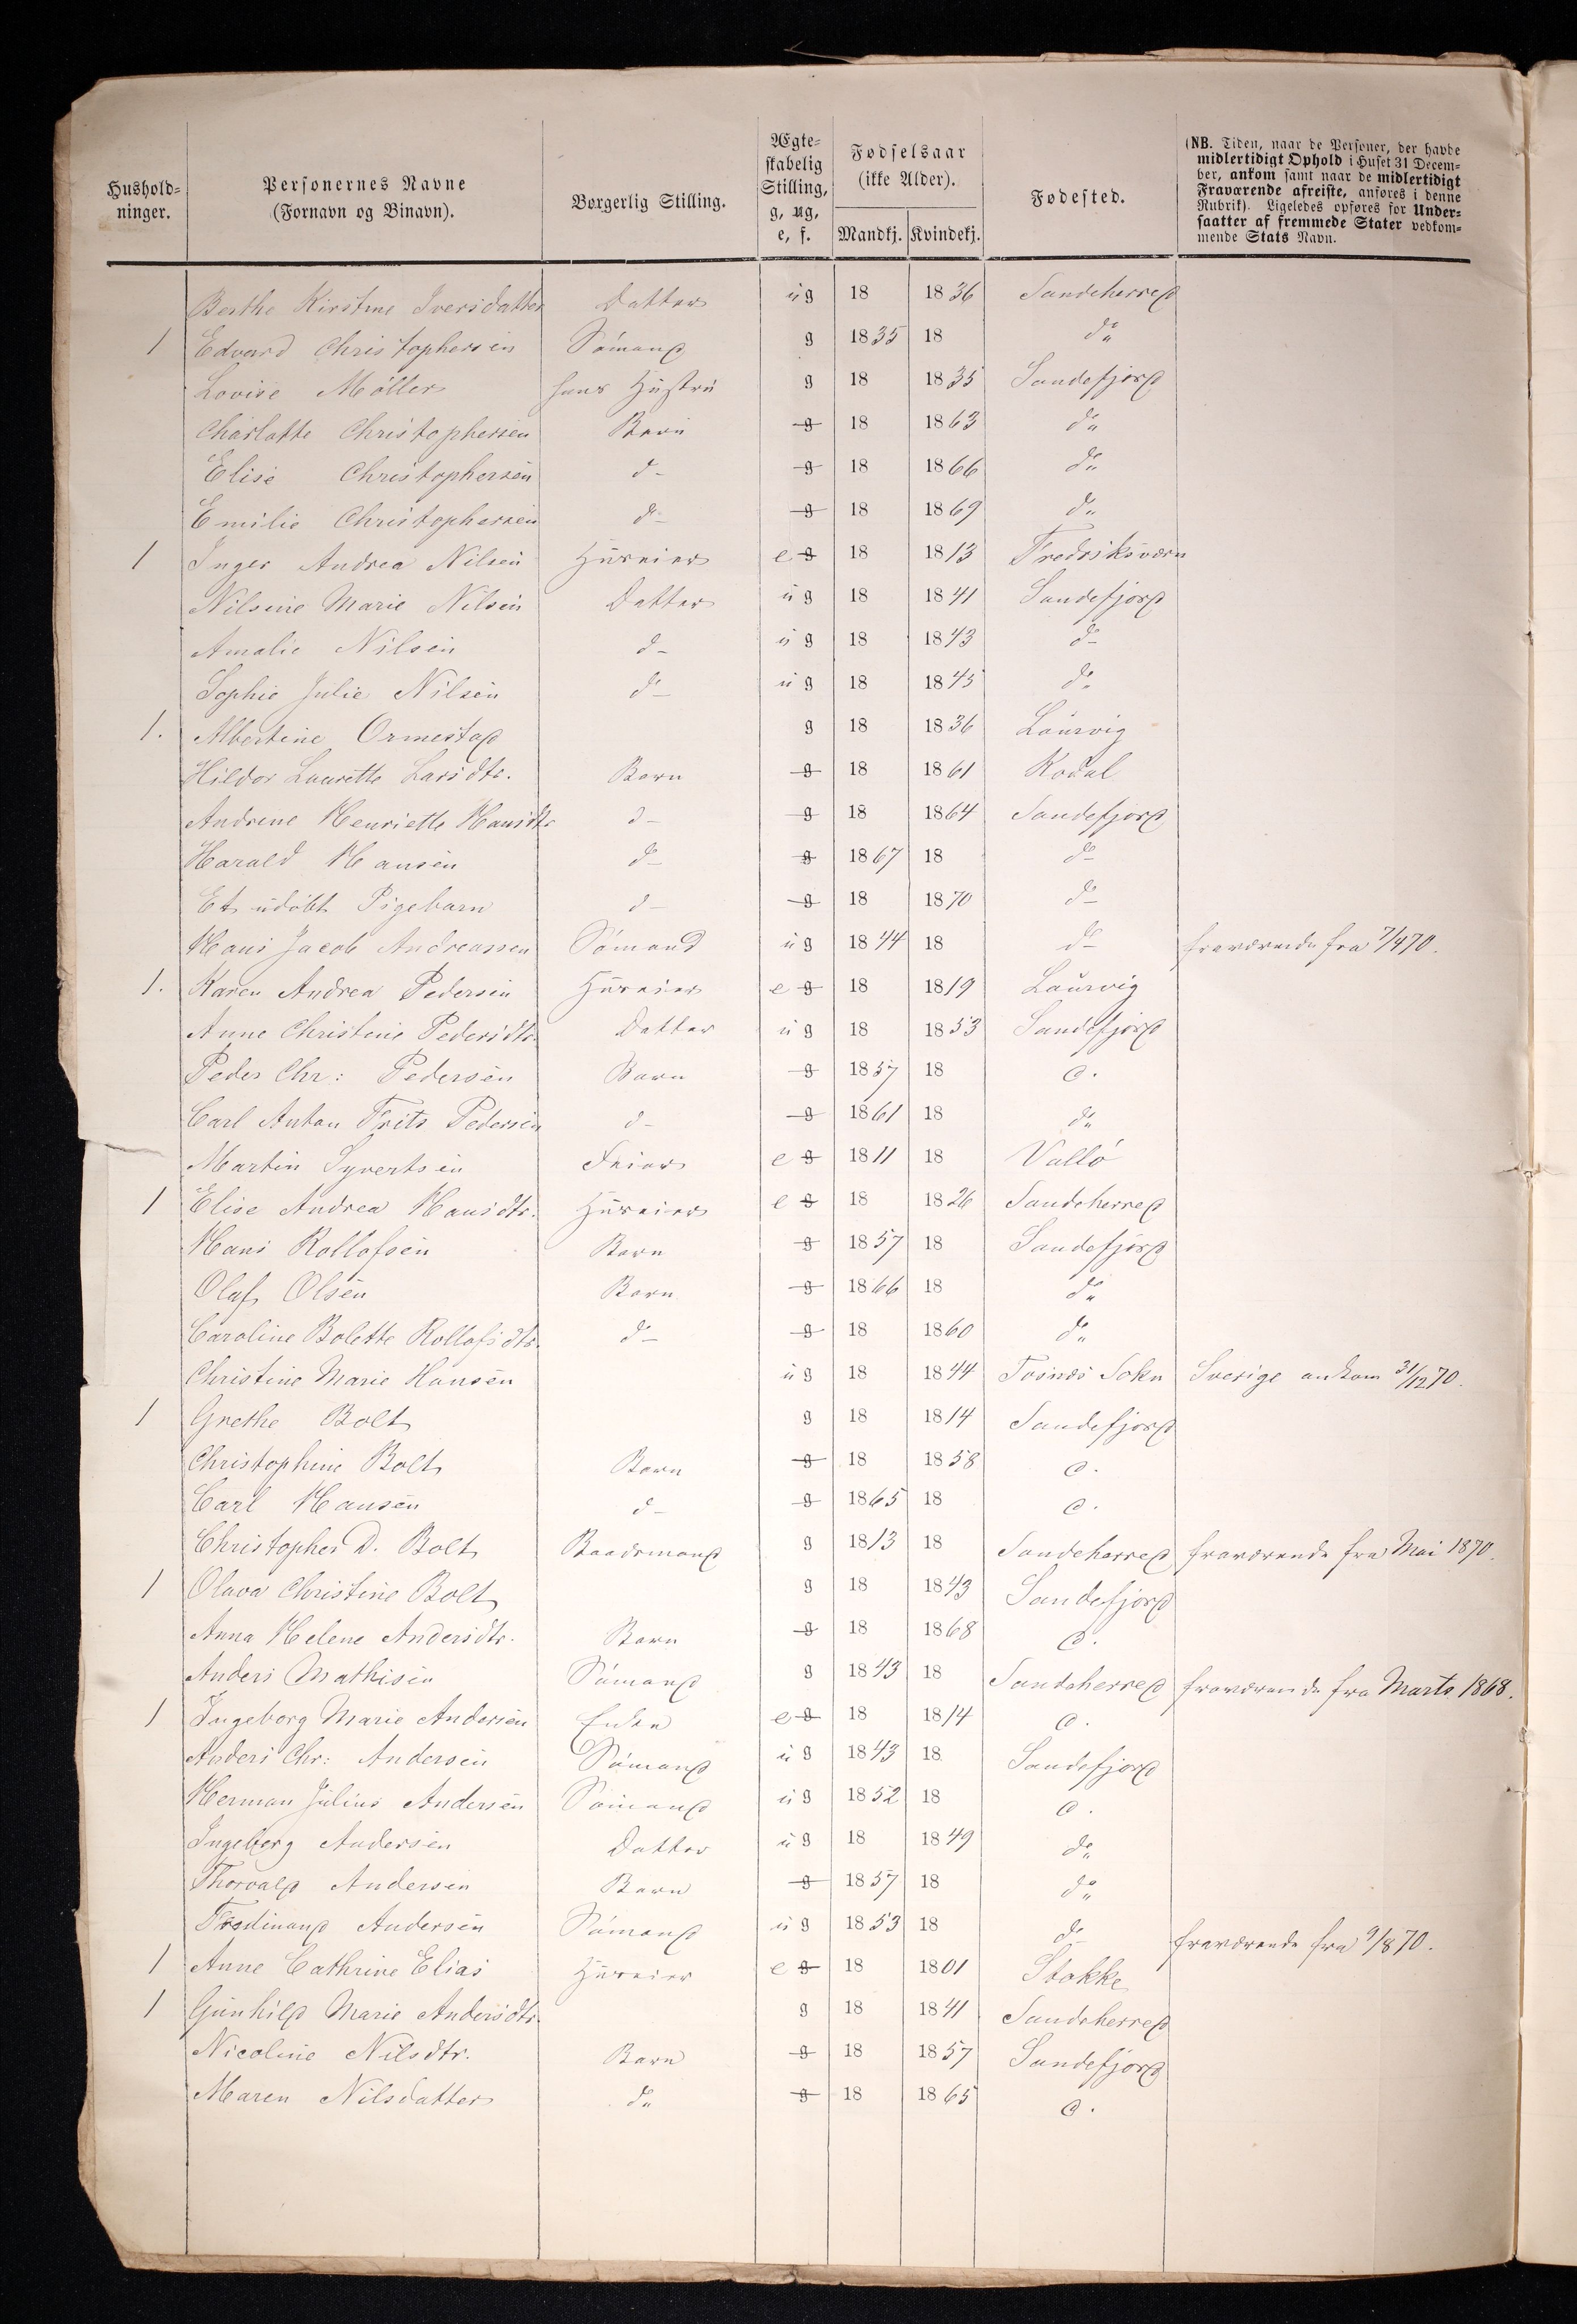 Hushold-
ninger.
Personernes Navne
(Fornavn og Binavn).
Borgerlig Stilling.
Ægte-
skabelig
Stilling,
g, ug,
e, f.
Fødselsaar
(ikke Alder).
Mandkj. Kvindekj.
Fødested.
(NB. Tiden, naar de Personer, der havde
midlertidigt Ophold i Huset 31 Decem-
ber, ankom samt naar de midlertidigt
Fraværende afreiste, anføres i denne
Rubrik). Ligeledes opføres for Under-
saatter af fremmede Stater vedkom-
mende Stats Navn.
Berthe Kirstine Iversdatter Datter ug 18 1836 Sandeherred
1 Edvard Christophersen Sömand g 1835 18 do
Lovise Möller hans Hustru g 18 1835 Sandefjord
Charlotte Christophersen Barn g 18 1863 do
Elise Christophersen d- g 18 1866 do
Emilie Christophersen do- g 18 1869 do
1 Inger Andrea Nilsen Huseier e g 18 1813 Fredriksværn
Nilsine Marie Nilsen Datter ug 18 1841 Sandefjord
Amalie Nilsen d- ug 18 1843 do-
Sophie Julie Nilsen do- ug 18 1845 do
1. Albertine Ormestad g 18 1836 Laurvig
Hildor Laurette Larsdtr. Barn g 18 1861 Kodal
Andrine Henriette Hansdtr d- g 18 1864 Sandefjord
Harald Hansen do- g 1867 18 do-
Et udöbt Pigebarn d- g 18 1870 do-
Hans Jacob Andreassen Sömand ug 1844 18 do- fraværende fra 7/9 70.
1. Karen Andrea Pedersen Huseier e g 18 1819 Laurvig
Anne Christine Pedersdtr. Datter ug 18 1853 Sandefjord
Peder Chr: Pedersen Barn g 1857 18 d.
Carl Anton Frits Pedersen d- g 1861 18 do
Martin Syvertsen Feier e g 1811 18 Vallö
1 Elise Andrea Hansdtr. Huseier e g 18 1826 Sandeherred
Hans Rollofsen Barn g 1857 18 Sandefjord
Olaf Olsen Barn g 1866 18 do
Caroline Bolette Rollofsdtr. do- g 18 1860 do
Christine Marie Hansen ug 18 1844 Tosnæs Sokn Sverige ankom 31/12 70.
1 Grethe Bolt g 18 1814 Sandefjord
Christophine Bolt Barn g 18 1858 d.
Carl Hansen d- g 1865 18 d.
Christopher D. Bolt Baadsmand g 1813 18 Sandeherred fraværende fra Mai 1870.
1 Olava Christine Bolt g 18 1843 Sandefjord
Anna Helene Andersdtr. Barn g 18 1868 d.
Anders Mathisen Sömand g 1843 18 Sandeherred fraværende fra Marts 1868.
1 Ingeborg Marie Andersen Enke e g 18 1814 d.
Anders Chr: Andersen Sömand ug 1843 18 Sandefjord
Herman Julius Andersen Sömand ug 1852 18 d.
Ingeborg Andersen Datter ug 18 1849 do
Thorvald Andersen Barn g 1857 18 do
Ferdinand Andersen Sömand ug 1853 18 do fraværende fra 9/8 70.
1 Anne Cathrine Elias Huseier e g 18 1801 Stokke
1 Gunhild Marie Andersdtr. g 18 1841 Sandeherred
Nicoline Nilsdtr. Barn g 18 1857 Sandefjord
Maren Nilsdatter do g 18 1865 d.